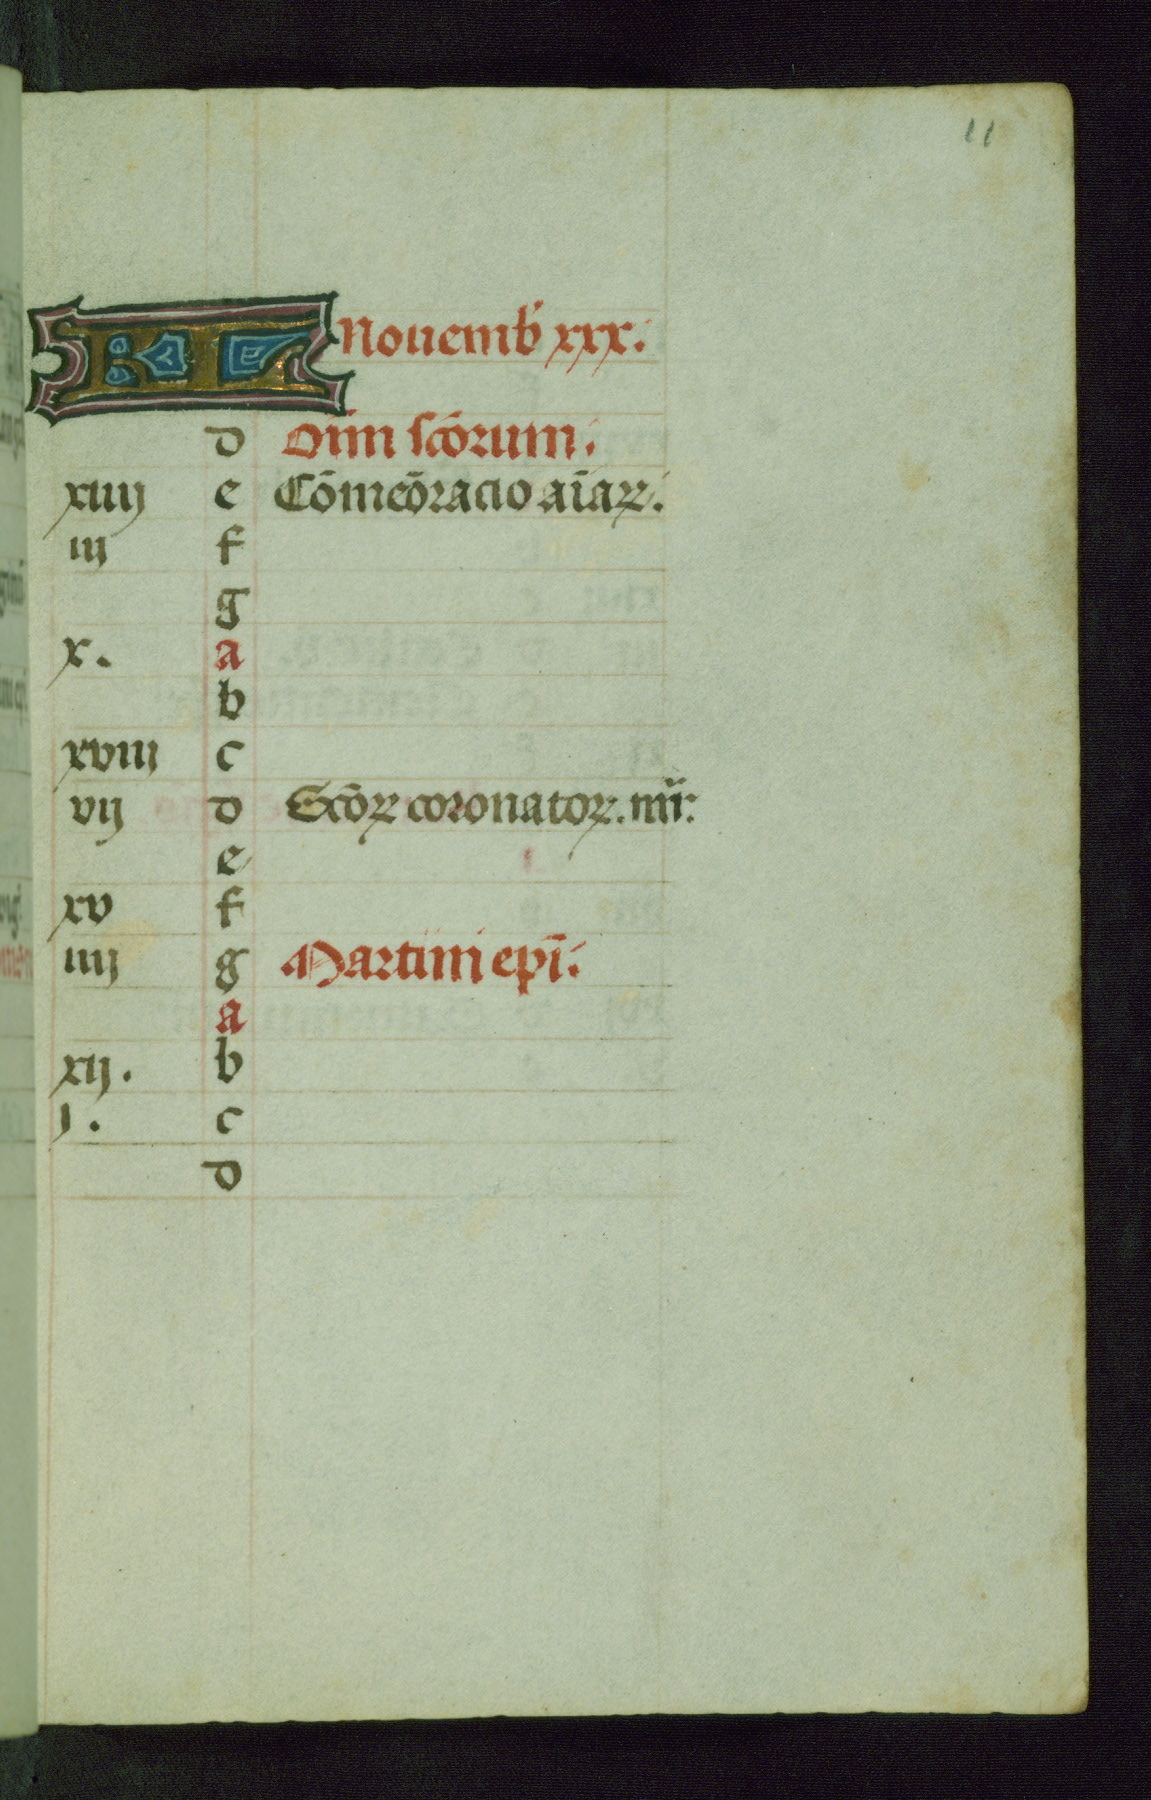 11
KL Nouemb̄ xxx.
d Oīm sc̄orum.
xiiij e Cōmeōracio aīaꝝ.
iij f
g
x. a
b
xviij c
vij d Sc̄oꝝ coronatoꝝ. iiij:
e
xv f
iiij g Martini ep̄i.
a
xij. b
j. c
d